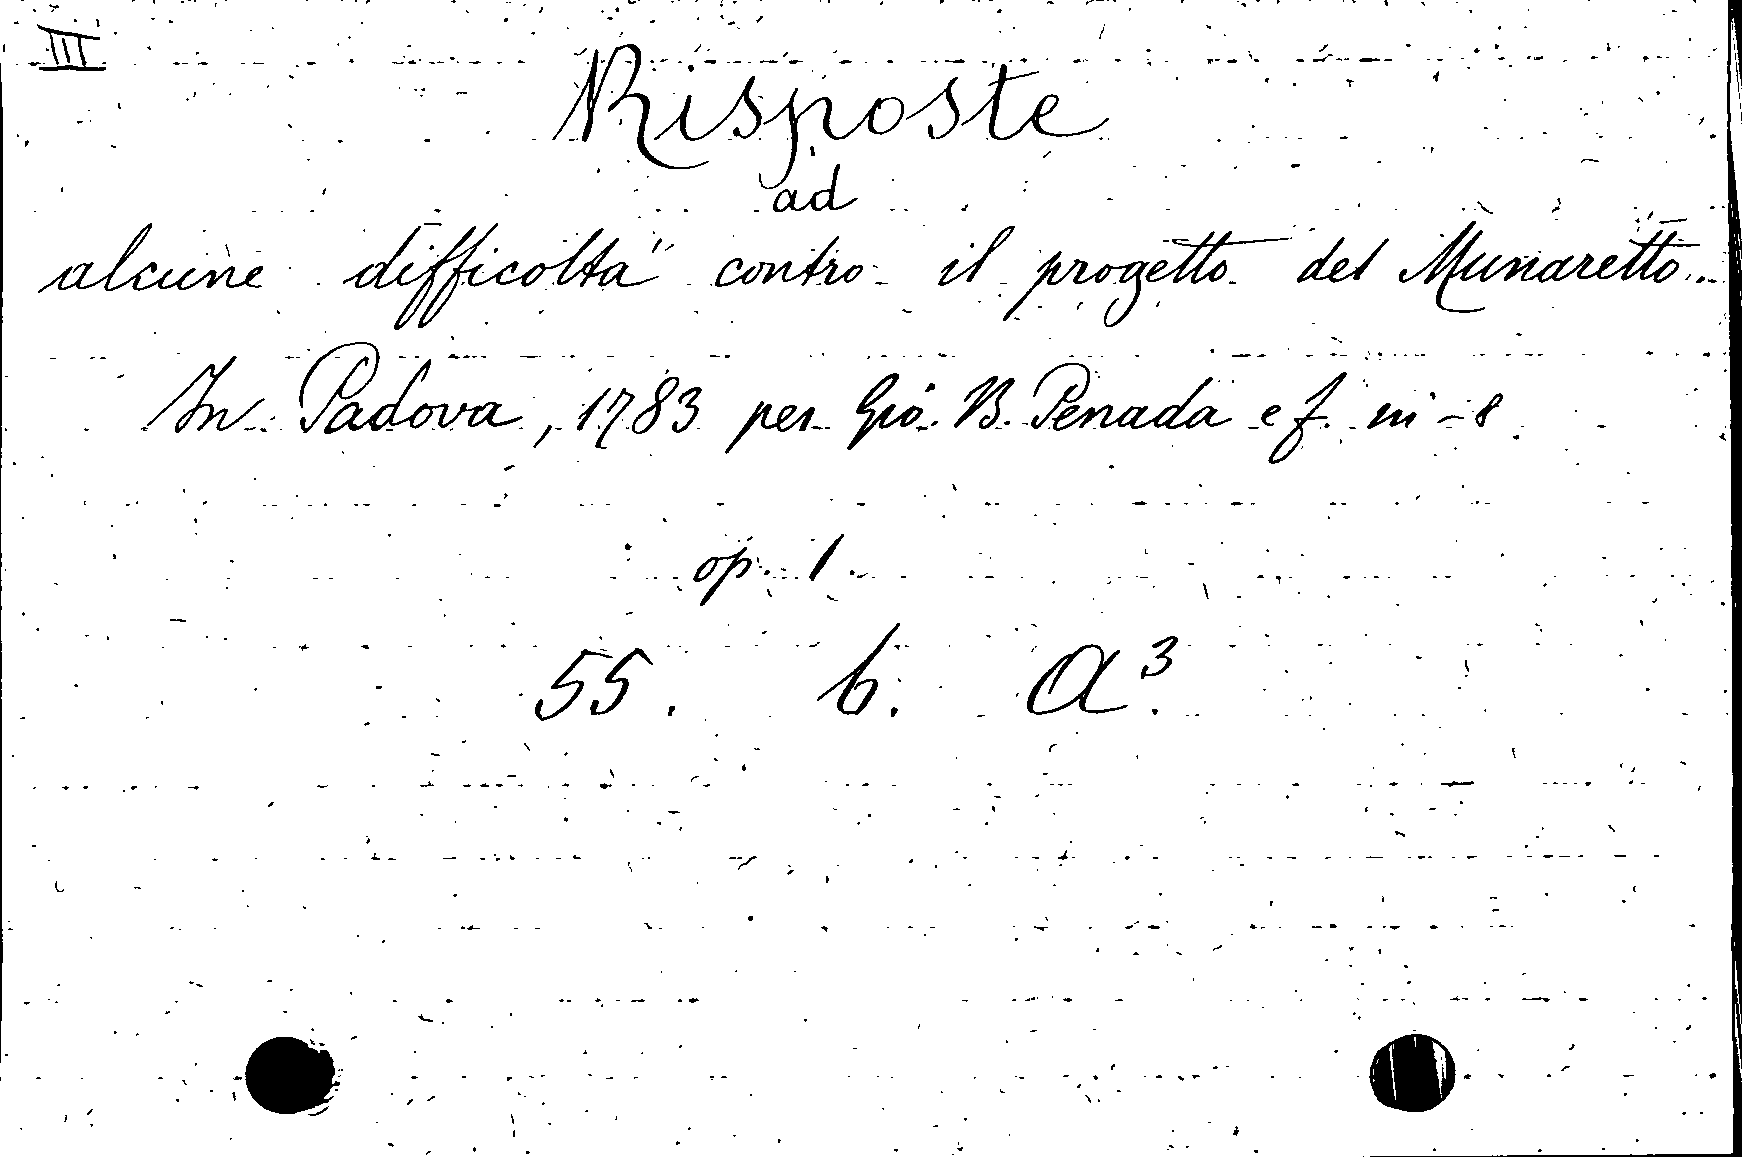 III
Risposte
ad
alcune difficoltà contro il progetto del Munaretto..
In Padova, 1783 per Gio. B. Penada e f. in-8
op. 1.
55. b. A³.